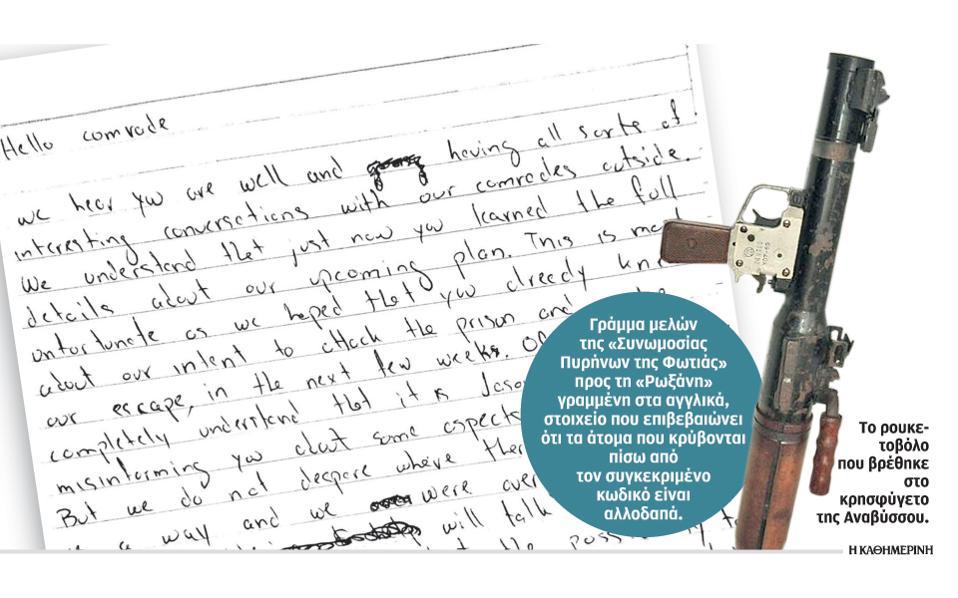 Hello comrade
we hear you are well and having all sorts of
interesting conversations with our comrades outside.
We understand that just now you learned the full
details about our upcoming plan. This is
unfortunate as we hoped that you already
about our intent to attack the prison and
our escape, in the next few weeks.
completely understand that it is
misinforming you about some aspects
But we do not despare where
a way and we were
will talk
to
Γράμμα μελών
της «Συνωμοσίας
Πυρήνων της Φωτιάς»
προς τη «Ρωξάνη»
γραμμένη στα αγγλικά,
στοιχείο που επιβεβαιώνει
ότι τα άτομα που κρύβονται
πίσω από
τον συγκεκριμένο
κωδικό είναι
αλλοδαπά.
Το ρουκε-
τοβόλο
που βρέθηκε
στο
κρησφύγετο
της Αναβύσσου.
Η ΚΑΘΗΜΕΡΙΝΗ